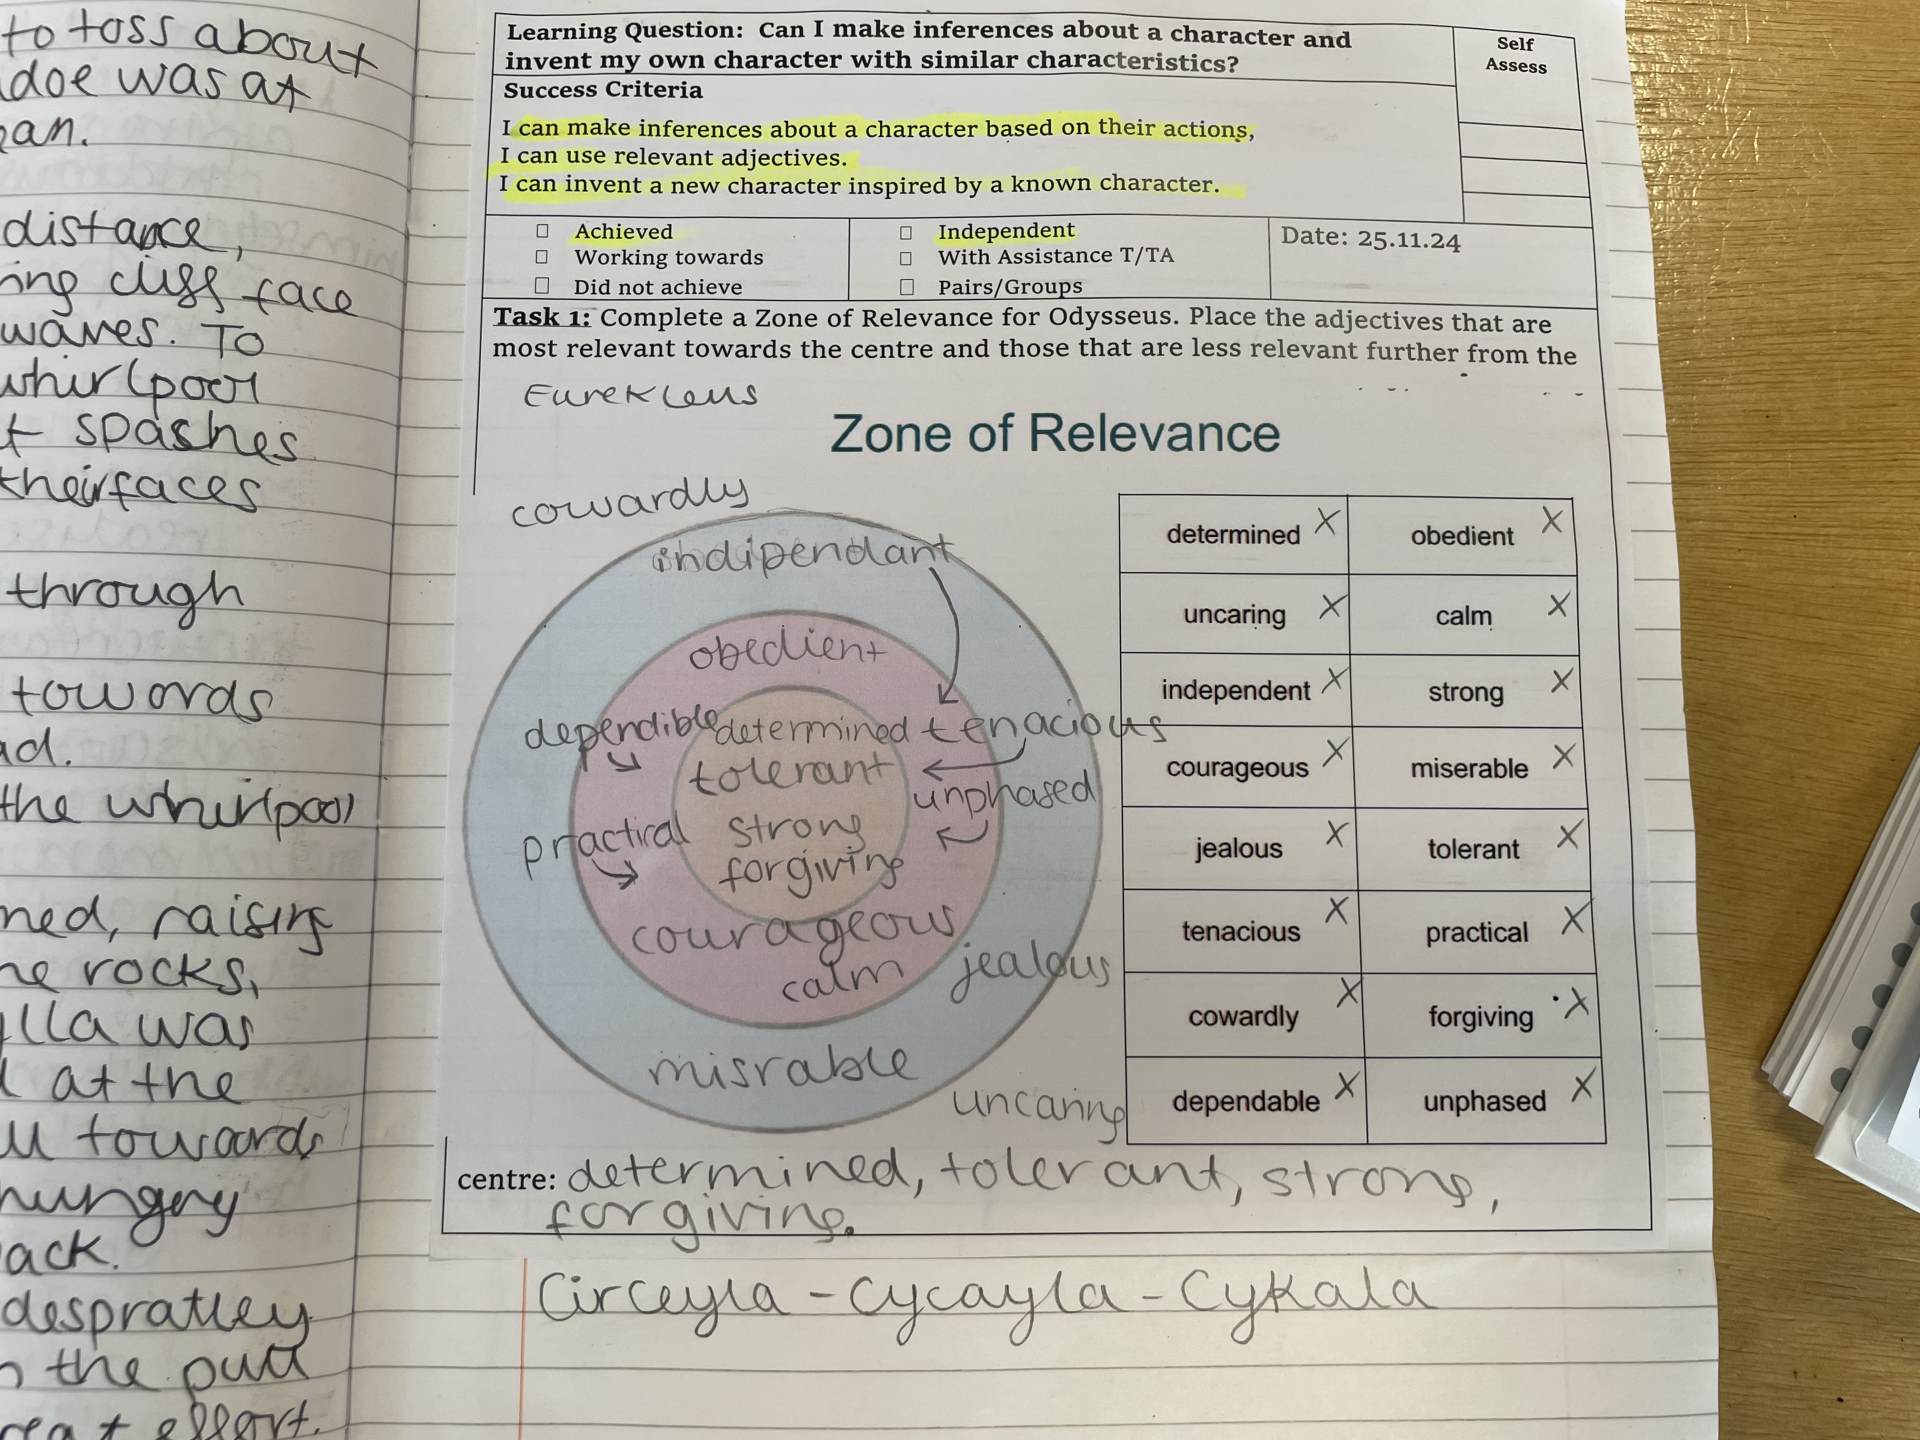 to toss about
doe was at
ean.
distance,
ing cliff face
waves. To
whirlpool
t spashes
their faces
through
towords
ad.
the whirlpool
ned, raising
he rocks,
ylla was
l at the
ll towards
hungry
ack.
despratley
n the pull
reat effort.
Learning Question: Can I make inferences about a character and
invent my own character with similar characteristics?
Self
Assess
Success Criteria
I can make inferences about a character based on their actions,
I can use relevant adjectives.
I can invent a new character inspired by a known character.
Achieved
Working towards
Did not achieve
Independent
With Assistance T/TA
Pairs/Groups
Date: 25.11.24
Task 1: Complete a Zone of Relevance for Odysseus. Place the adjectives that are
most relevant towards the centre and those that are less relevant further from the
Eurekleus
Zone of Relevance
cowardly
indipendant
obedient
dependible determined tenacious
tolerant
unphased
practical strong
forgiving
courageous
calm jealous
misrable
uncaring
determined X obedient X
uncaring X calm X
independent X strong X
courageous X miserable X
jealous X tolerant X
tenacious X practical X
cowardly X forgiving X
dependable X unphased X
centre: determined, tolerant, strong,
forgiving.
Circeyla - Cycayla - Cykala